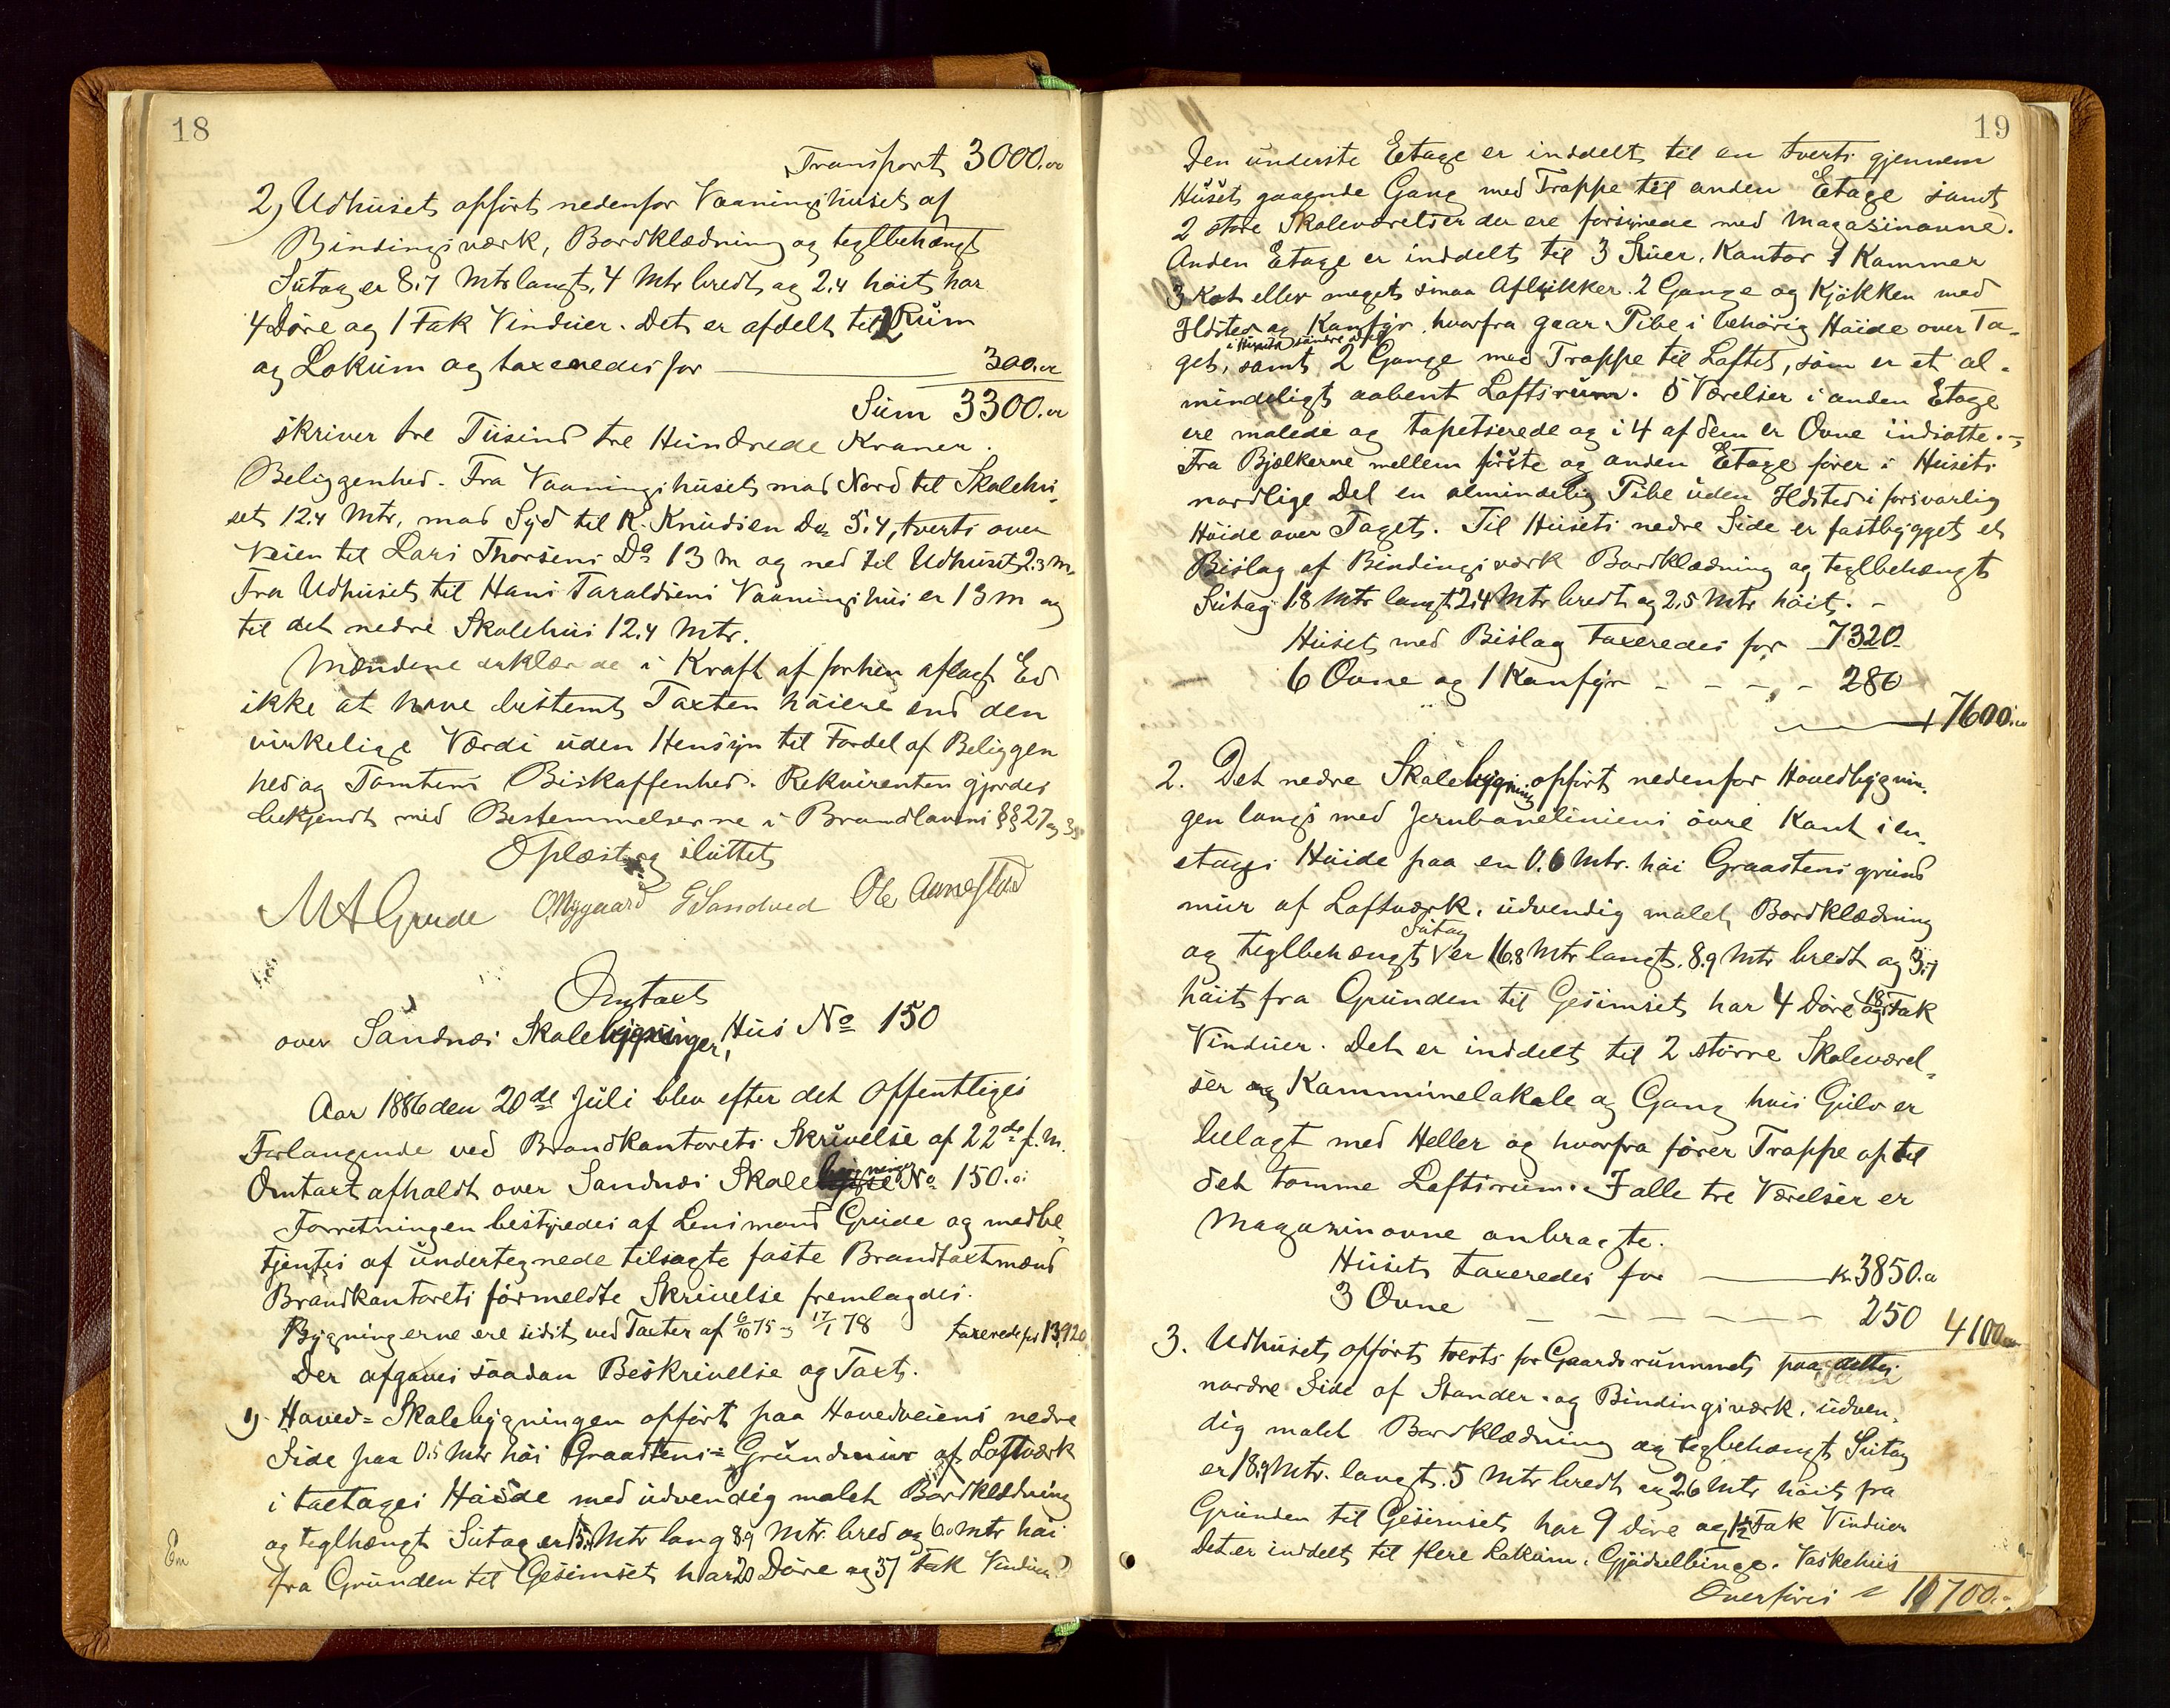 18
Transport 3000.00
2) Udhuset opført nedenfor Vaaningshuset af
Bindingsværk, Bordklædning og teglbehængt
Sutag er 8.7 Mtr langt, 4 Mtr bredt og 2.4 høit har
4 Døre og 1 Fak Vinduer. Det er afdelt til 2 Rum
og Lokum og taxeredes for 300.00
Sum 3300.00
skriver tre Tusind tre Hundrede Kroner.
Beliggenhed. Fra Vaaningshuset mod Nord til Skolehu-
set 12.4 Mtr, mod Syd til K. Knudsen Do 5.4, tverts over
Veien til Lars Thorsens Do 13 m og ned til Udhuset 2.3 m.
Fra Udhuset til Hans Taraldsens Vaaningshus er 13 m og
til det nedre Skolehus 12.4 Mtr.
Mændene erklærede i Kraft af forhen aflagt Ed
ikke at have bestemt Taxten høiere end den
virkelige Værdi uden Hensyn til Fordel af Beliggen
hed og Tomtens Beskaffenhed. Rekvirenten gjordes
bekjendt med Bestemmelserne i Brandlovens §§ 27 og 38
Oplæst og sluttet
M A Grude O Nygaard G Sandved Ole Aanestad
Omtaxt
over Sandnæs Skolebygninger, Hus No 150
Aar 1886 den 20de Juli blev efter det Offentliges
Forlangende ved Brandkontorets Skrivelse af 22de f. M.
Omtaxt afholdt over Sandnæs Skolebygninger No 150.
Forretningen bestyredes af Lensmand Grude og medbe-
tjentes af undertegnede tilsagte faste Brandtaxtmænd
Brandkontorets formeldte Skrivelse fremlagdes.
Bygningerne ere sidst ved Taxter af 6/10 75 og 17/1 78 taxerede for 13,920
Der afgaves saadan Beskrivelse og Taxt.
1) Hoved-Skolebygningen opført paa Hovedveiens nedre
Side paa 0.5 Mtr høi Graastens-Grundmur af Loftværk
i toetages Høide med udvendig malet Bordklædning
og teglhængt Sutag er Mtr lang 8.9 Mtr. bred og 6.0 Mtr høi
fra Grunden til Gesimset har 20 Døre og 37 Fak Vinduer
Em
19
Den underste Etage er inddelt til en tverts gjennem
Huset gaaende Gang med Trappe til anden Etage samt
2 store Skoleværelser der ere forsynede med Magasinovne.
Anden Etage er inddelt til 3 Stuer, Kontor 1 Kammer
3 Kot eller meget smaa Aflukker. 2 Gange og Kjøkken med
Ildsted og Komfyr hvorfra gaar Pibe i behørig Høide over Ta-
i Husets søndre Del
get, samt 2 Gange med Trappe til Loftet, som er et al-
mindeligt aabent Loftsrum. 5 Værelser i anden Etage
ere malede og tapetserede og i 4 af dem er Ovne indsatte.
Fra Bjælkerne mellem første og anden Etage fører i Husets
nordlige Del en almindelig Pibe uden Ildsted i forsvarlig
Høide over Taget. Til Husets nedre Side er fastbygget et
Bislag af Bindingsværk Bordklædning og teglbehængt
Sutag 1.8 Mtr langt 2.4 Mtr bredt og 2.5 Mtr høit.
Huset med Bislag taxeredes for 7320
6 Ovne og 1 Komfyr - - - - 280
7600.00
2. Det nedre Skolebygning opført nedenfor Hovedbygnin-
gen langs med Jernbaneliniens øvre Kant i en-
etages Høide paa en 0.6 Mtr. høi Graastens grund
mur af Loftværk, udvendig malet Bordklædning
Sutag
og teglbehængt er 16.8 Mtr langt. 8.9 Mtr bredt og 3.7
høit fra Grunden til Gesimset har 4 Døre og 18 Fak
Vinduer. Det er inddelt til 2 større Skoleværel-
ser og Kommunelokale og Gang hvis Gulv er
belagt med Heller og hvorfra fører Trappe op til
det tomme Loftsrum. I alle tre Værelser er
Magazinovne anbragte.
Huset taxeredes for Kr. 3850.
3 Ovne - - - - - - 250 4100.00
3. Udhuset opført tverts for Gaardsrummet paa dettes
nordre Side af Stander- og Bindingsværk, udven-
dig malet Bordklædning og teglbehængt Sutag
er 18.9 Mtr. langt. 5 Mtr bredt og 2.6 Mtr høit fra
Grunden til Gesimset har 9 døre og Fak Vinduer
Det er inddelt til flere Lokum, Gjødselbinge. Vaskehus
Overføres 11700.